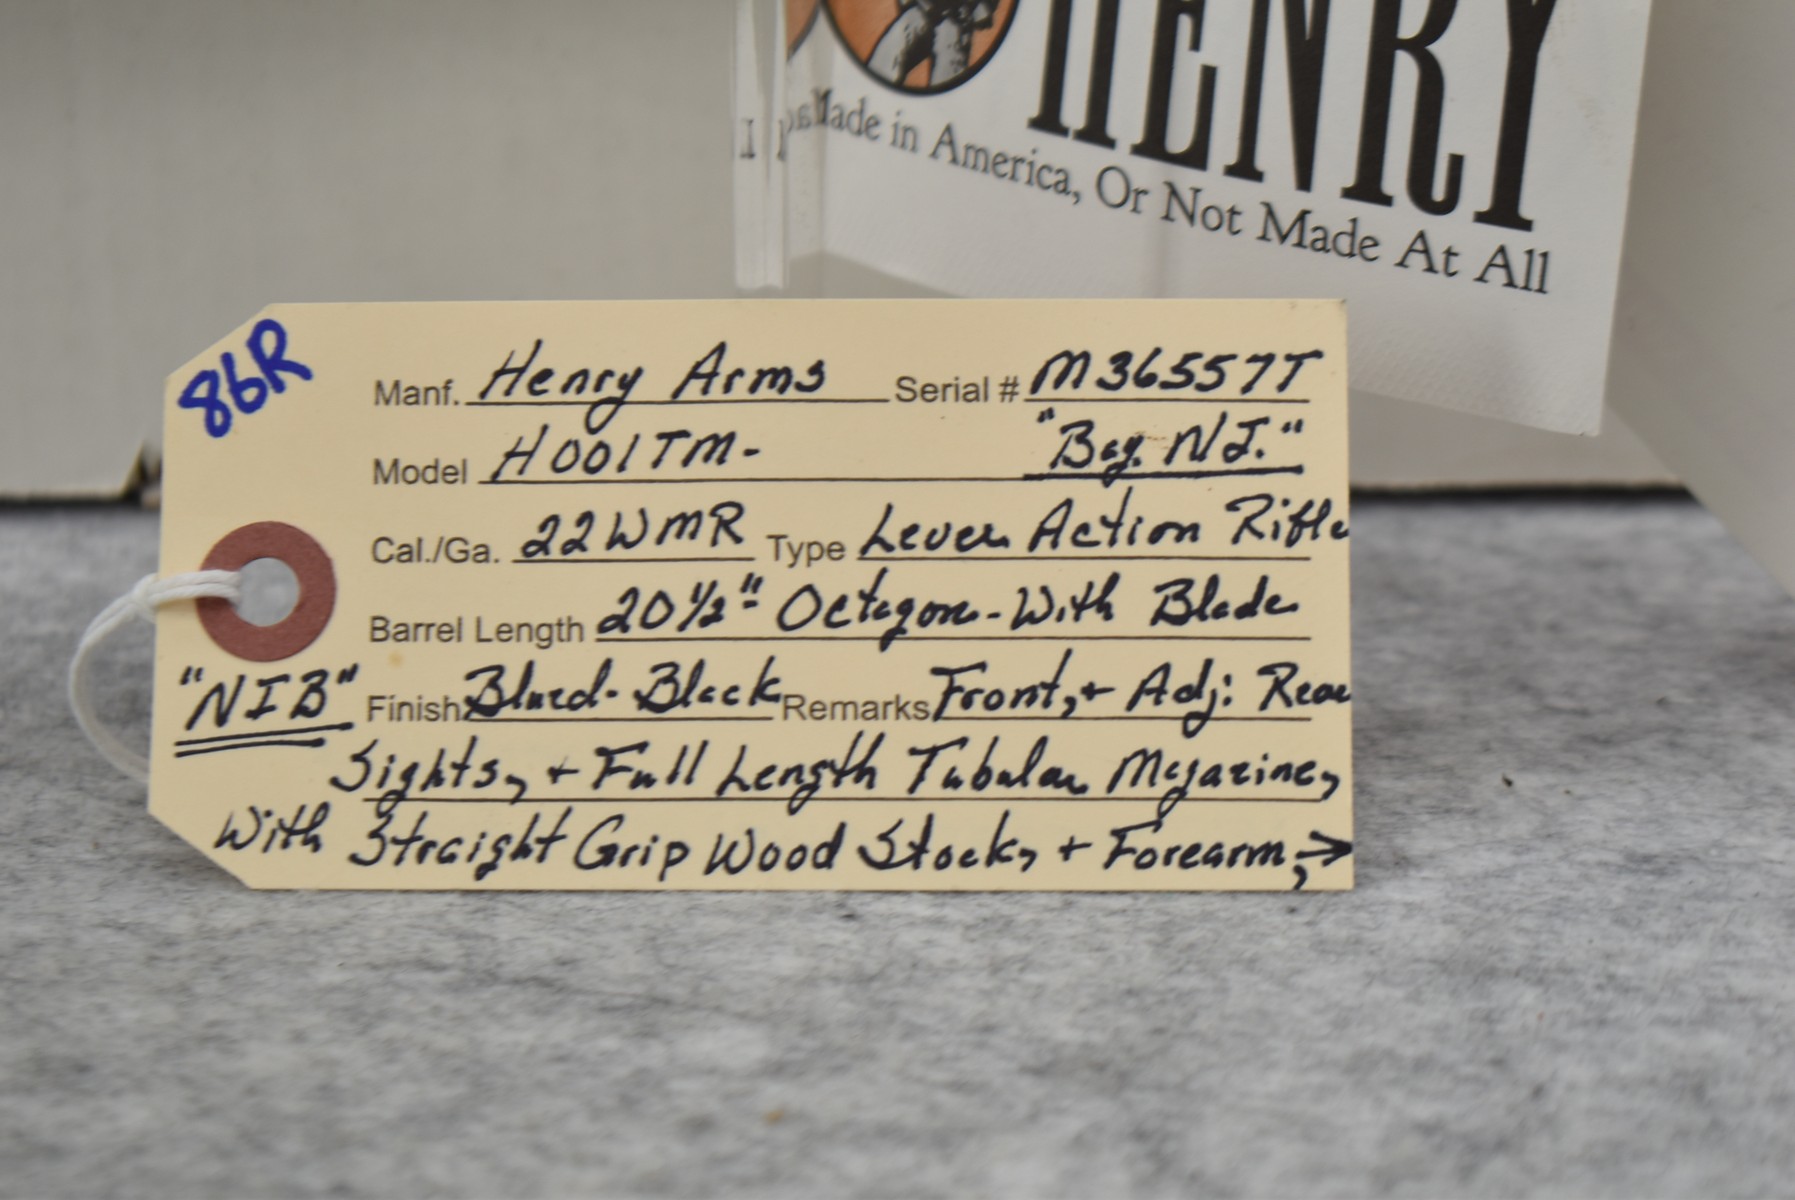 HENRY
Made in America, Or Not Made At All
86R
Manf. Henry Arms Serial # M36557T
Model H001TM- "Bay. NJ."
Cal./Ga. 22WMR Type Lever Action Rifle
Barrel Length 20 1/2" Octagon-With Blade
"NIB" Finish Blued-Black Remarks Front, + Adj: Rear
Sights, + Full Length Tubular Magazine,
With Straight Grip Wood Stock, + Forearm, →